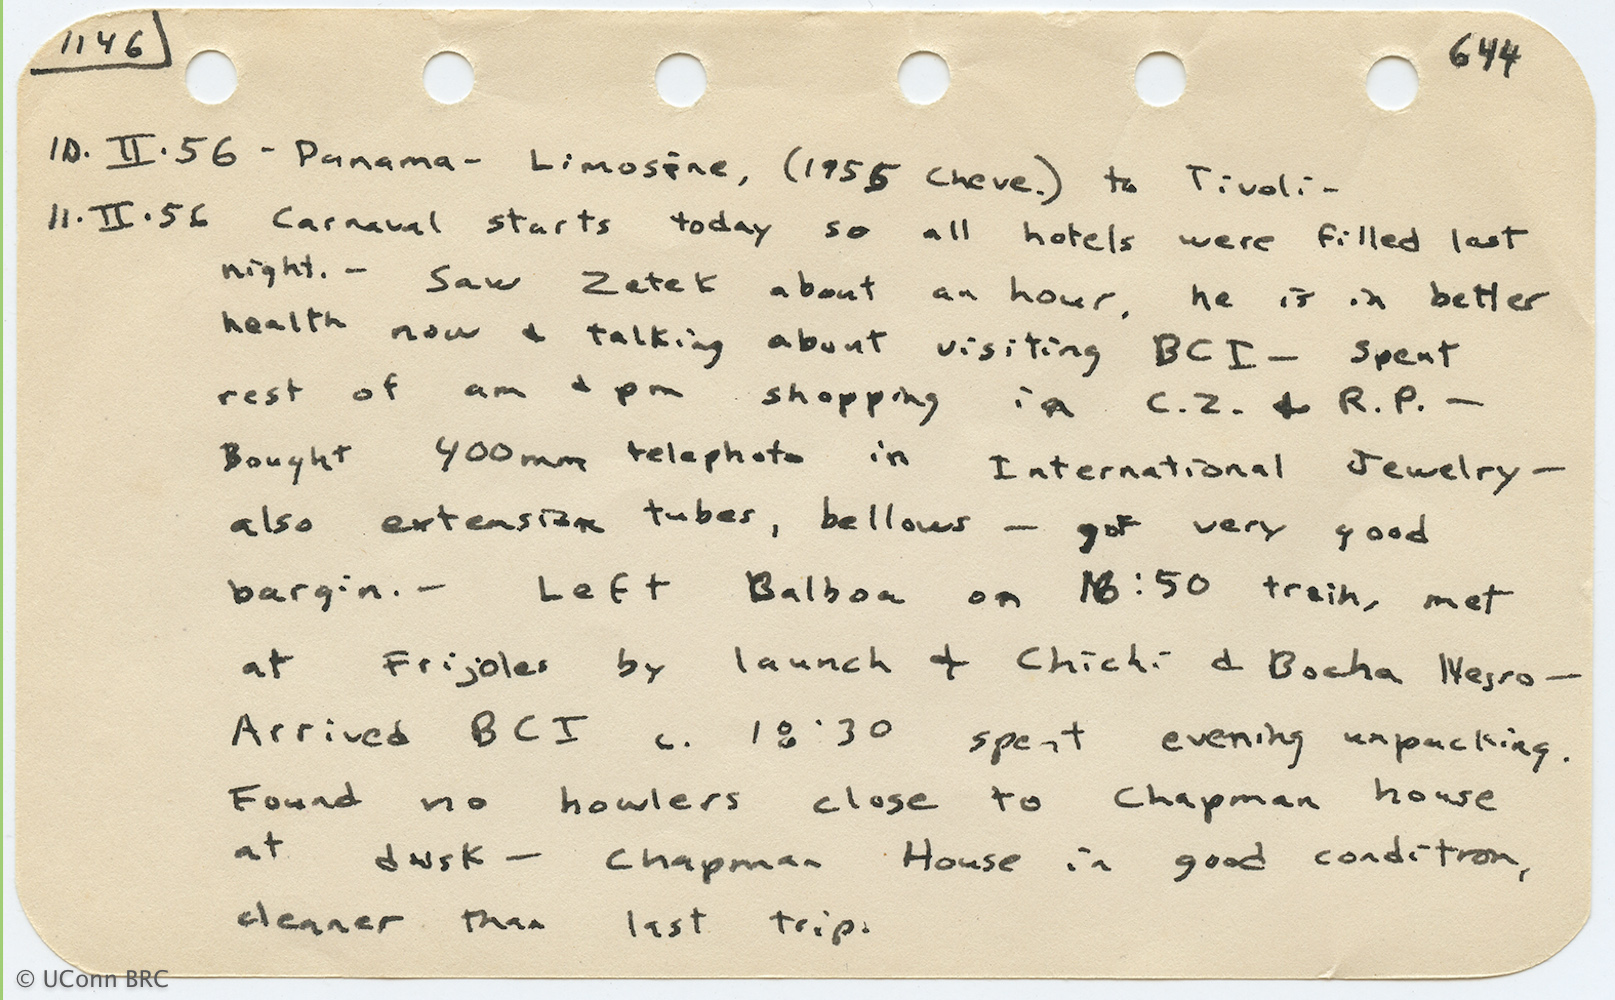 1146
644
10. II. 56 - Panama - Limosine, (1955 Cheve.) to Tivoli -
11. II. 56 Carnaval starts today so all hotels were filled last
night. - Saw Zetek about an hour, he is in better
health now & talking about visiting BCI - Spent
rest of am & pm shopping in C.Z. & R.P. -
Bought 400mm telephoto in International Jewelry -
also extension tubes, bellows - got very good
bargin. - Left Balboa on :50 train, met
at Frijoles by launch & Chichi & Bocha Negro -
Arrived BCI c. 18:30 spent evening unpacking.
Found no howlers close to Chapman house
at dusk - Chapman House in good condition,
cleaner than last trip.
© UConn BRC